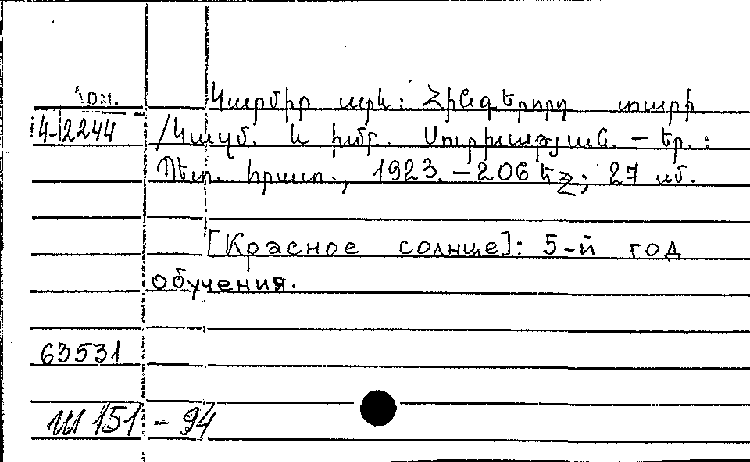 Կարմիր արև: Հինգերորդ տարի
14-12244 /Կազմ. և խմբ. - Եր.:
Պետ. հրատ., 1923. - 206 եջ; 27 սմ.
[Красное солнце]: 5-й год
обучения.
63531
Ш 151 - 94